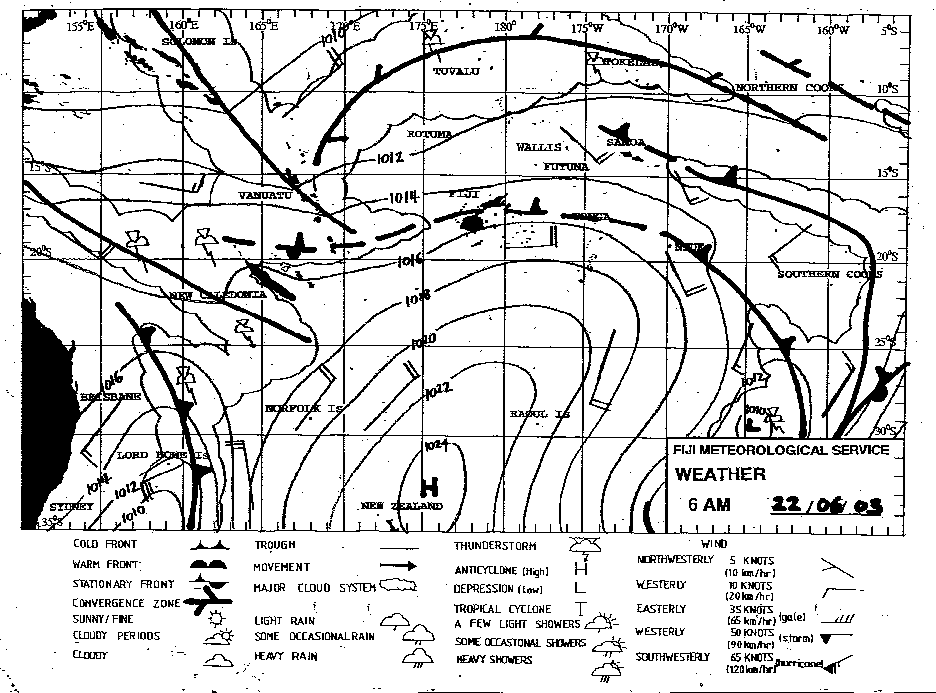 155°E 160°E 165°E 175°E 180° 175°W 170°W 165°W 160°W 5°S
SOLOMON IS
1010
TUVALU
TOKELAU
NORTHERN COOKS
10°S
ROTUMA
WALLIS
SAMOA
1012
FUTUNA
15°S
15°S
VANUATU
1014
FIJI
TONGA
NIUE
20°S
1016
20°S
SOUTHERN COOKS
NEW CALEDONIA
1018
1020
25°S
1016
1022
1012
BRISBANE
NORFOLK IS
RAOUL IS
1010
L
30°S
1024
LORD HOWE IS
1014
1012
1010
H
SYDNEY
NEW ZEALAND
35°S
FIJI METEOROLOGICAL SERVICE
WEATHER
6 AM 22/06/03
COLD FRONT
WARM FRONT
STATIONARY FRONT
CONVERGENCE ZONE
SUNNY/FINE
CLOUDY PERIODS
CLOUDY
TROUGH
MOVEMENT
MAJOR CLOUD SYSTEM
LIGHT RAIN
SOME OCCASIONAL RAIN
HEAVY RAIN
THUNDERSTORM
ANTICYCLONE (High) H
DEPRESSION (Low) L
TROPICAL CYCLONE
A FEW LIGHT SHOWERS
SOME OCCASIONAL SHOWERS
HEAVY SHOWERS
WIND
NORTHWESTERLY 5 KNOTS
(10 km/hr)
WESTERLY 10 KNOTS
(20km/hr)
EASTERLY 35 KNOTS
(65 km/hr) (gale)
WESTERLY 50 KNOTS
(90km/hr) (storm)
SOUTHWESTERLY 65 KNOTS
(120km/hr) (hurricane)